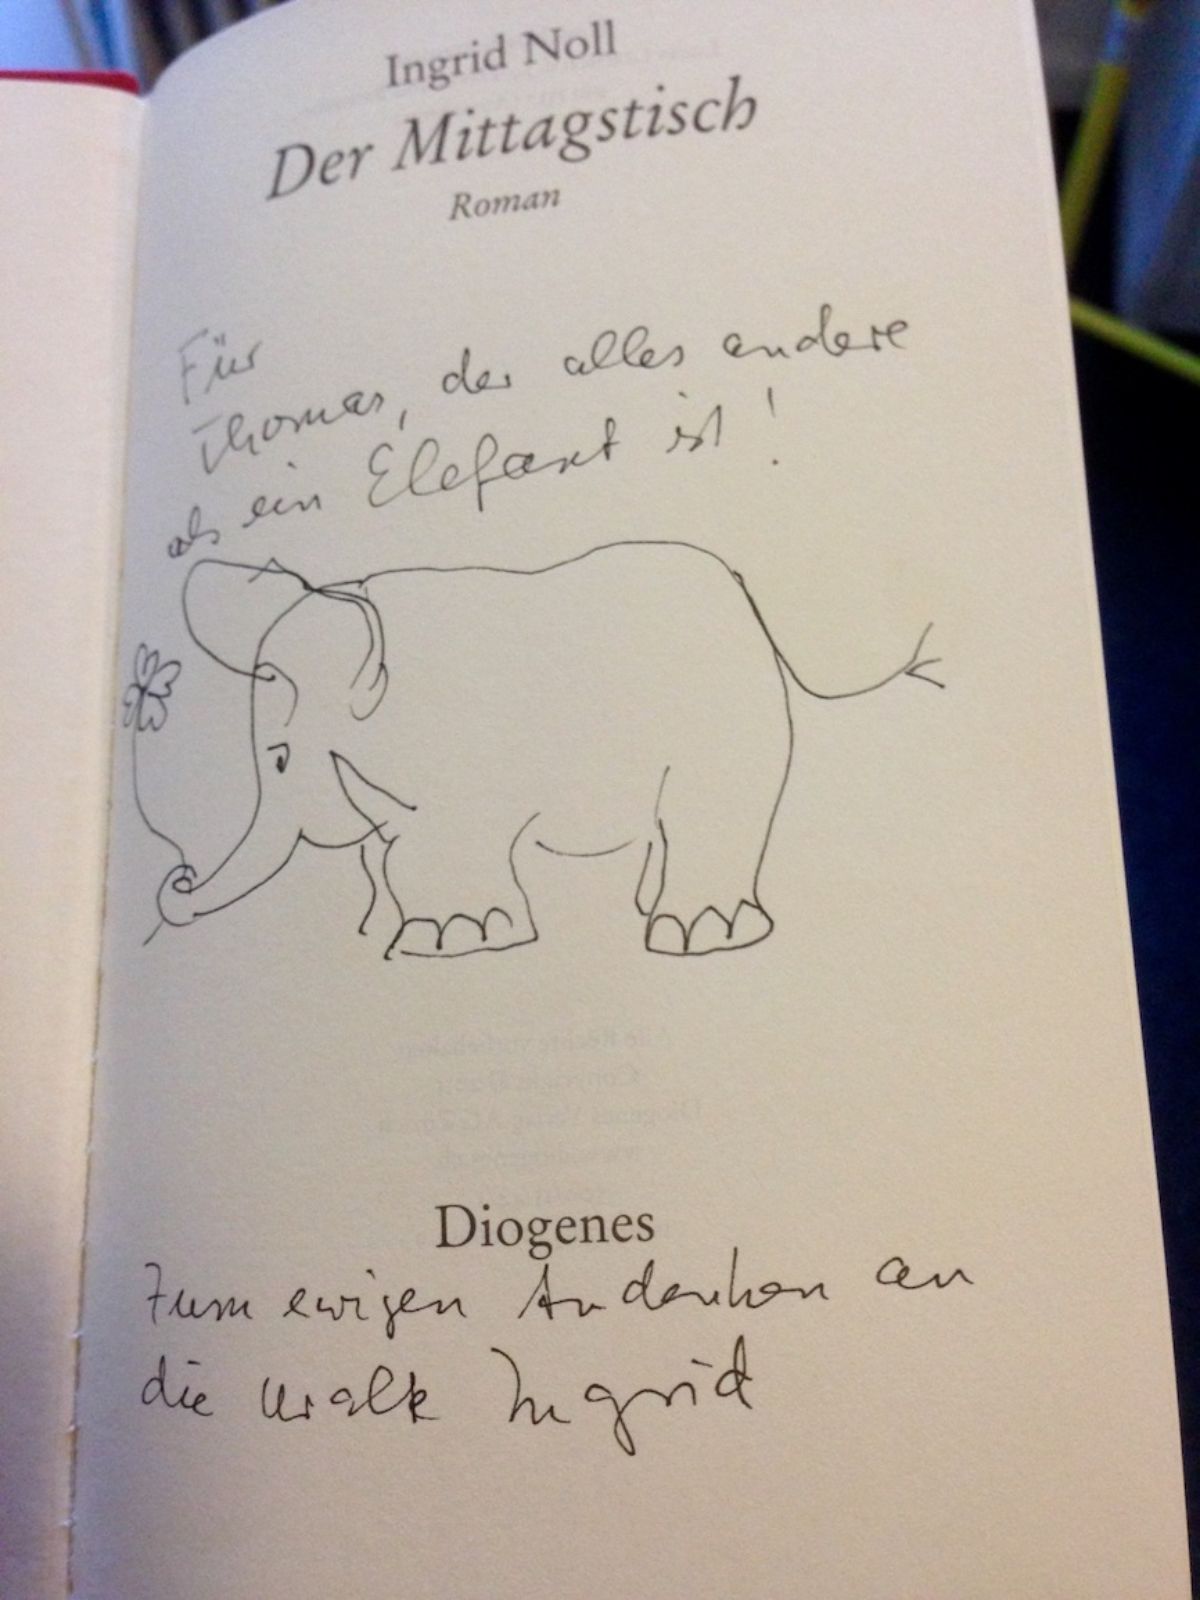 Ingrid Noll
Der Mittagstisch
Roman
Für
Thomas, der alles andere
als ein Elefant ist!
Diogenes
Zum ewigen Andenken an
die uralte Ingrid